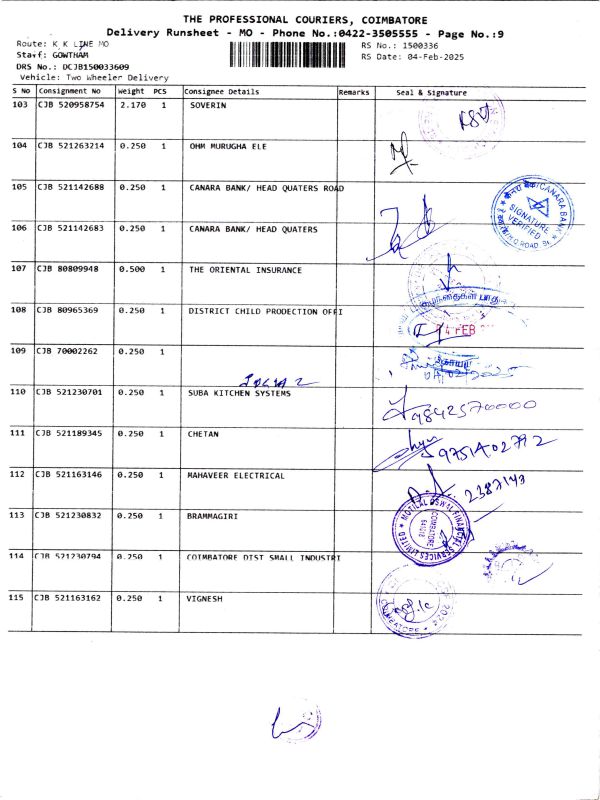 THE PROFESSIONAL COURIERS, COIMBATORE
Delivery Runsheet - MO - Phone No.:0422-3505555 - Page No.:9
Route: K K LINE MO
RS No.: 1500336
Staff: GOWTHAM
RS Date: 04-Feb-2025
DRS No.: DCJB150033609
Vehicle: Two Wheeler Delivery
S No Consignment No Weight PCS Consignee Details Remarks Seal & Signature
103 CJB 520958754 2.170 1 SOVERIN
104 CJB 521263214 0.250 1 OHM MURUGHA ELE
105 CJB 521142688 0.250 1 CANARA BANK/ HEAD QUATERS ROAD
CANARA BANK
SIGNATURE
VERIFIED
106 CJB 521142683 0.250 1 CANARA BANK/ HEAD QUATERS
107 CJB 80809948 0.500 1 THE ORIENTAL INSURANCE
108 CJB 80965369 0.250 1 DISTRICT CHILD PRODECTION OFFI
FEB
109 CJB 70002262 0.250 1
110 CJB 521230701 0.250 1 SUBA KITCHEN SYSTEMS
9842570000
111 CJB 521189345 0.250 1 CHETAN
112 CJB 521163146 0.250 1 MAHAVEER ELECTRICAL
2387143
113 CJB 521230832 0.250 1 BRAMMAGIRI
MOTILAL OSWAL FINANCIAL SERVICES LIMITED
COIMBATORE
114 CJB 521230794 0.250 1 COIMBATORE DIST SMALL INDUSTRI
115 CJB 521163162 0.250 1 VIGNESH